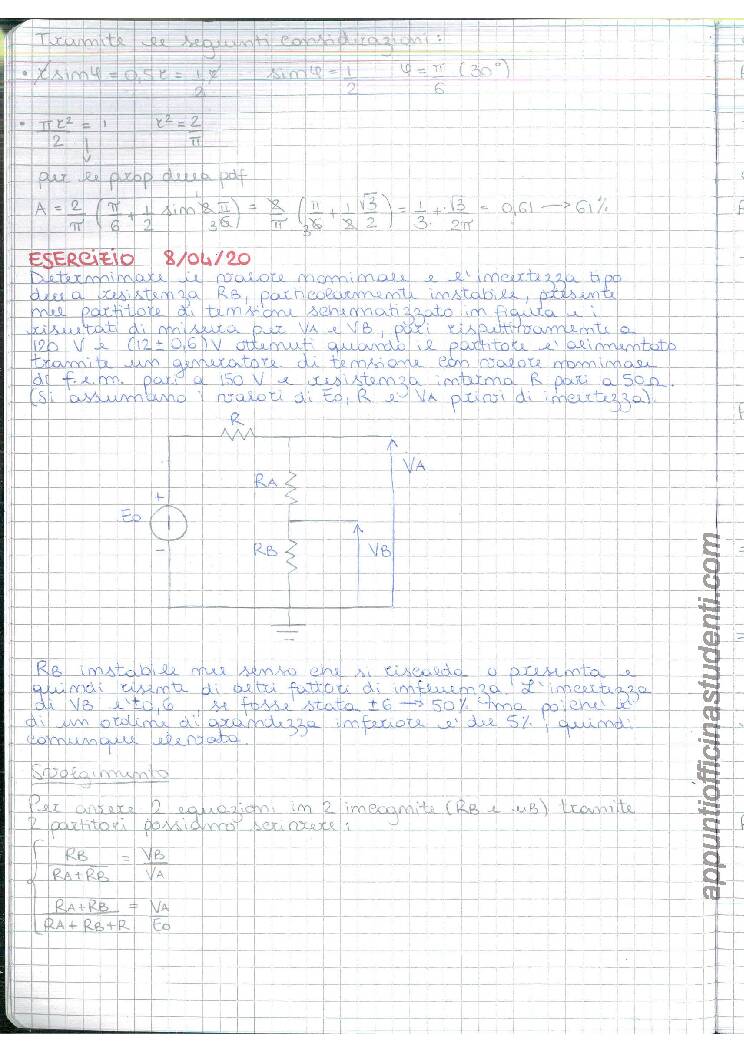 Tramite le seguenti considerazioni:
• r sinφ = 0,5r = 1/2 r sinφ = 1/2 φ = π/6 (30°)
• πr²/2 = 1 r² = 2/π
↓
per le prop della pdf
A = 2/π (π/6 + 1/2 sin 2π/6) = 2/π (π/6 + 1/2 √3/2) = 1/3 + √3/2π = 0,61 → 61%
ESERCIZIO 8/04/20
Determinare il valore nominale e l'incertezza tipo
della resistenza RB, particolarmente instabile, presente
nel partitore di tensione schematizzato in figura e i
risultati di misura per VA e VB, pari rispettivamente a
120 V e (12 ± 0,6) V ottenuti quando il partitore è alimentato
tramite un generatore di tensione con valore nominale
di f.e.m. pari a 150 V e resistenza interna R pari a 50Ω.
(Si assumano i valori di E0, R e VA privi di incertezza).
R
VA
RA
+
E0
-
RB
VB
RB instabile nel senso che si riscalda o presenta e
quindi risente di altri fattori di influenza. L'incertezza
di VB è ±0,6, se fosse stata ±6 → 50% ma poiché è
di un ordine di grandezza inferiore è del 5%, quindi
comunque elevata.
Svolgimento
Per avere 2 equazioni in 2 incognite (RB e uB) tramite
2 partitori possiamo scrivere:
{ RB/(RA + RB) = VB/VA
(RA + RB)/(RA + RB + R) = VA/E0
appuntiofficinastudenti.com